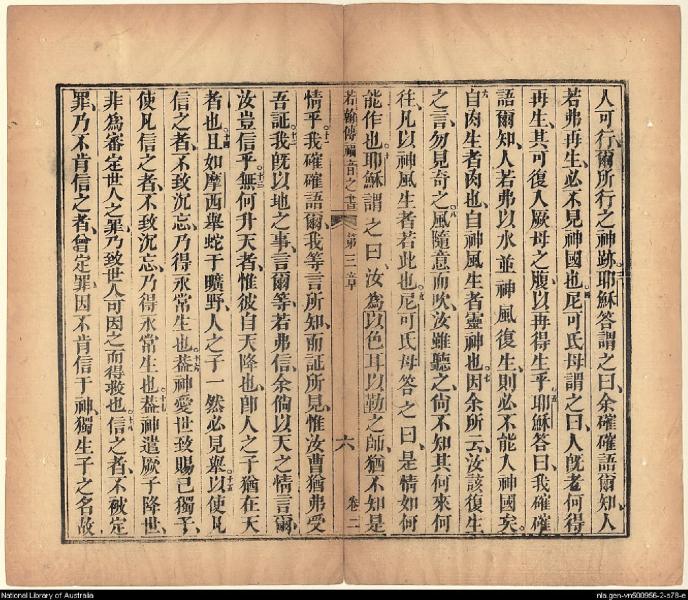 人可行爾所行之神跡耶穌答謂之曰余確確語爾知人
若弗再生必不見神國也尼可氏母謂之曰人既老何得
再生其可復人厥母之腹以再得生乎耶穌答曰我確確
語爾知人若弗以水並神風復生則必不能人神國矣
自肉生者肉也自神風生者靈神也因余所云汝該復生
之言勿見奇之風隨意而吹汝雖聽之尚不知其何來何
往凡以神風生者若此也尼可氏母答之曰是情如何
能作也耶穌謂之曰汝為以色耳以勒之師猶不知是
若翰傳福音之書 第三章 六 卷二
情乎我確確語爾我等言所知而証所見惟汝曹猶弗受
吾証我既以地之事言爾等若弗信余倘以天之情言爾
汝豈信乎無何升天者惟彼自天降也即人之子猶在天
者也且如摩西舉蛇于曠野人之子一然必見舉以使凡
信之者不致沉忘乃得永常生也蓋神愛世致賜己獨子
使凡信之者不致沉忘乃得永常生也蓋神遣厥子降世
非為審定世人之罪乃致世人可因之而得救也信之者不被定
罪乃不肯信之者曾定罪因不肯信于神獨生子之名故
National Library of Australia
nla.gen-vn500956-2-s78-e